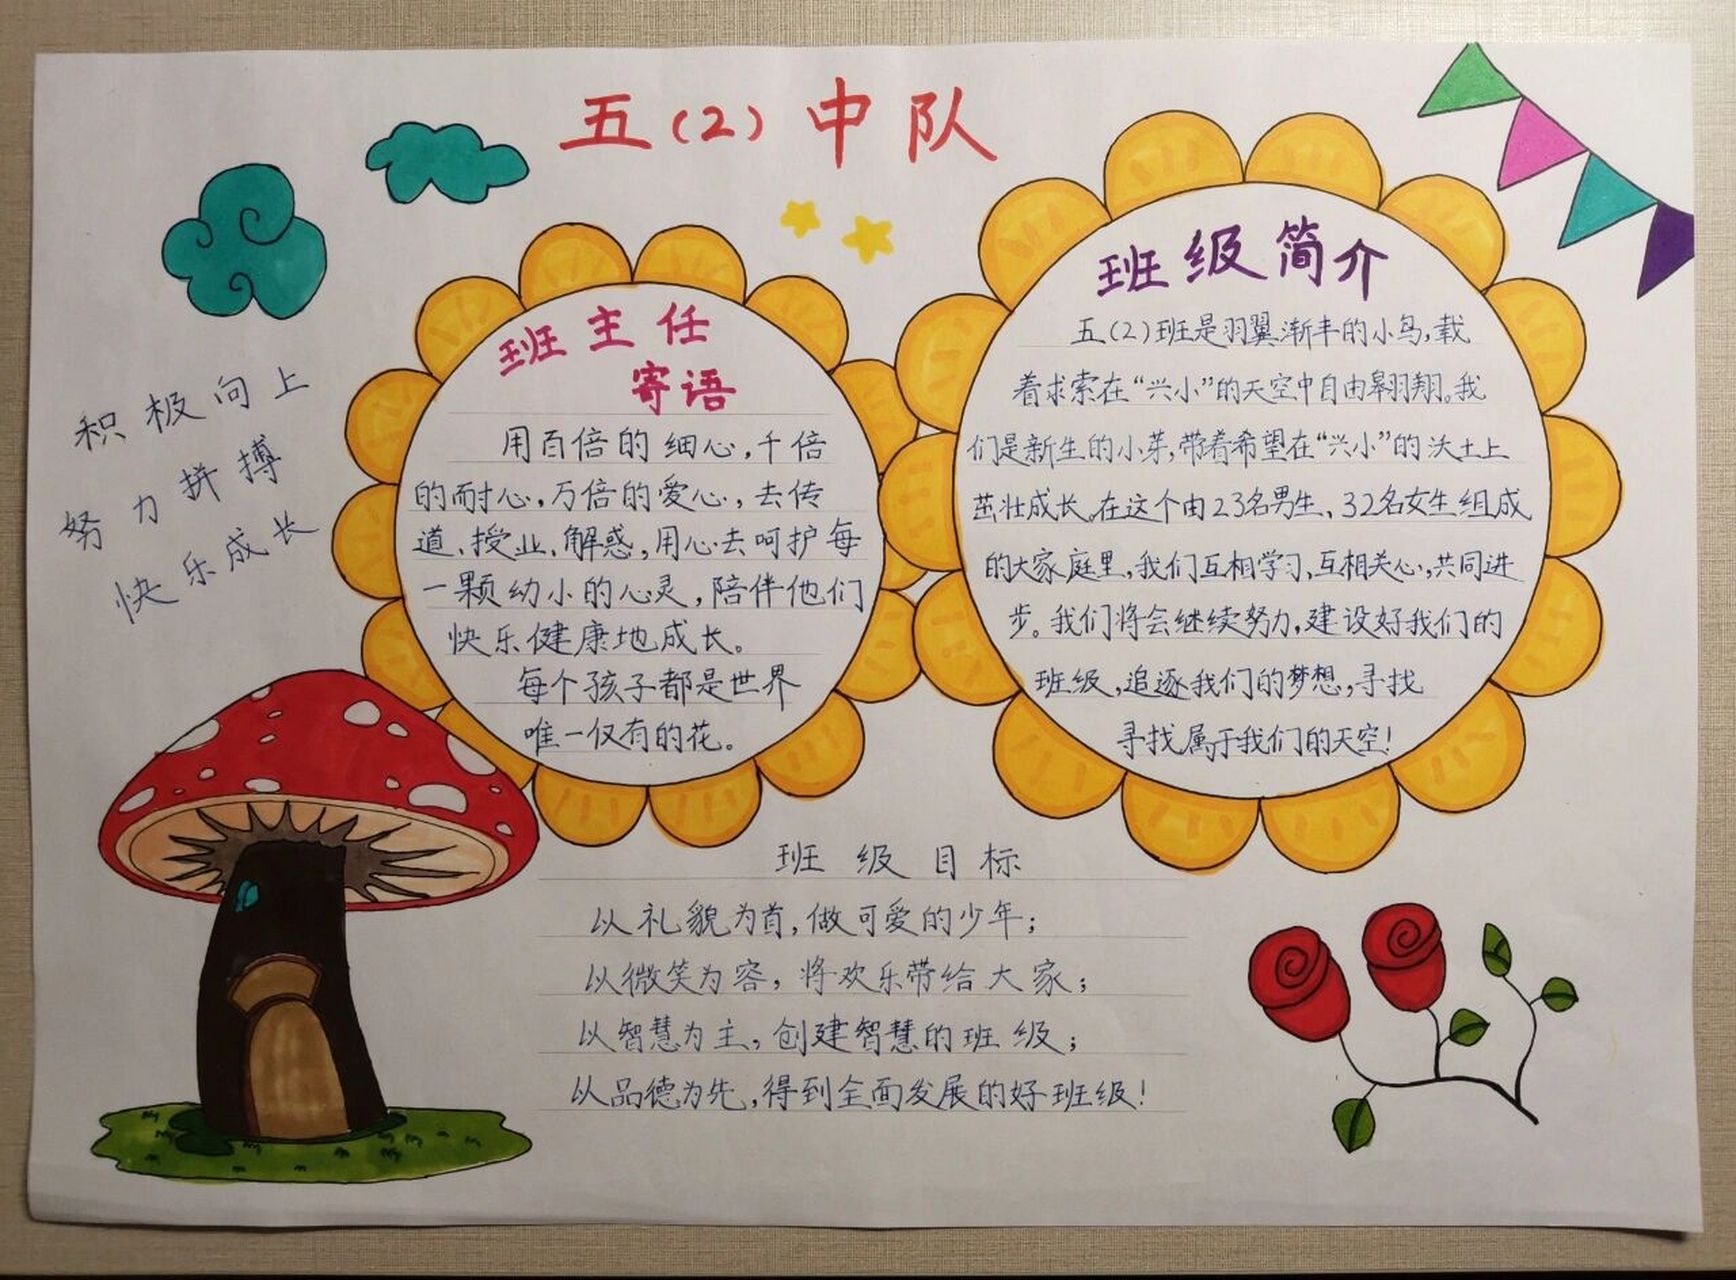 五(2)中队
积极向上
努力拼搏
快乐成长
班主任
寄语
用百倍的细心,千倍
的耐心,万倍的爱心,去传
道、授业、解惑,用心去呵护每
一颗幼小的心灵,陪伴他们
快乐健康地成长。
每个孩子都是世界
唯一仅有的花。
班级简介
五(2)班是羽翼渐丰的小鸟,载
着求索在“兴小”的天空中自由翱翔。我
们是新生的小芽,带着希望在“兴小”的沃土上
茁壮成长。在这个由23名男生、32名女生组成
的大家庭里,我们互相学习,互相关心,共同进
步。我们将会继续努力,建设好我们的
班级,追逐我们的梦想,寻找
寻找属于我们的天空!
班级目标
以礼貌为首,做可爱的少年;
以微笑为容,将欢乐带给大家;
以智慧为主,创建智慧的班级;
以品德为先,得到全面发展的好班级!